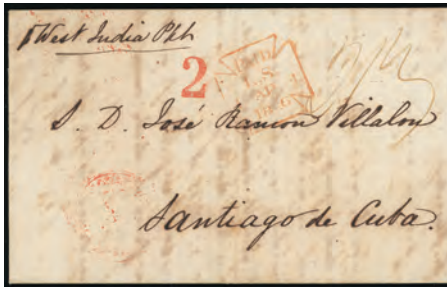 West India Pkt
2
PAID
S. D. José Ramon Villalon
Santiago de Cuba.